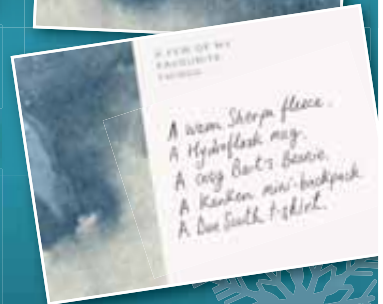 A FEW OF MY
FAVOURITE
THINGS
A warm Sherpa fleece.
A Hydroflask mug.
A cosy Barts Beanie.
A Kanken mini-backpack
A Due South t-shirt.